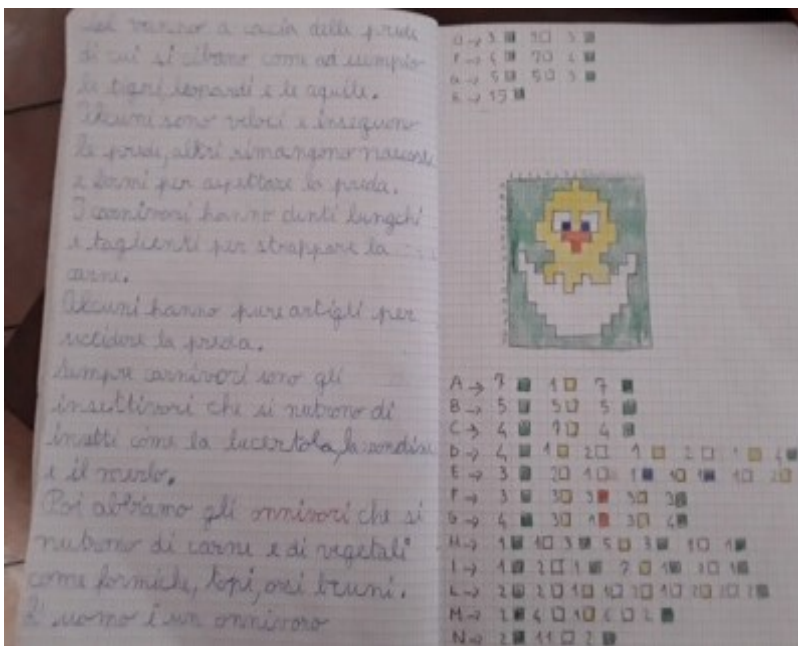 vanno a caccia delle prede
di cui si cibano come ad esempio
le tigri, leopardi e le aquile.
Alcuni sono veloci e inseguono
le prede, altri rimangono nascosti
e fermi per aspettare la preda.
I carnivori hanno denti lunghi
e taglienti per strappare la
carne.
Alcuni hanno pure artigli per
uccidere la preda.
Sempre carnivori sono gli
insettivori che si nutrono di
insetti come la lucertola, la rondine
e il merlo.
Poi abbiamo gli onnivori che si
nutrono di carne e di vegetali
come formiche, topi, orsi bruni.
L'uomo è un onnivoro
O → 3 9 3
P → 4 7 4
Q → 5 5 5
R → 15
A → 7 1 7
B → 5 5 5
C → 4 7 4
D → 4 1 2 1 2 1 4
E → 3 2 1 1 1 1 1 2
F → 3 3 3 3 3
G → 4 3 1 3 4
H → 1 1 3 5 3 1 1
I → 1 2 1 7 1 2 1
L → 2 2 1 1 1 2 2
M → 2 4 1 1 2
N → 2 11 2